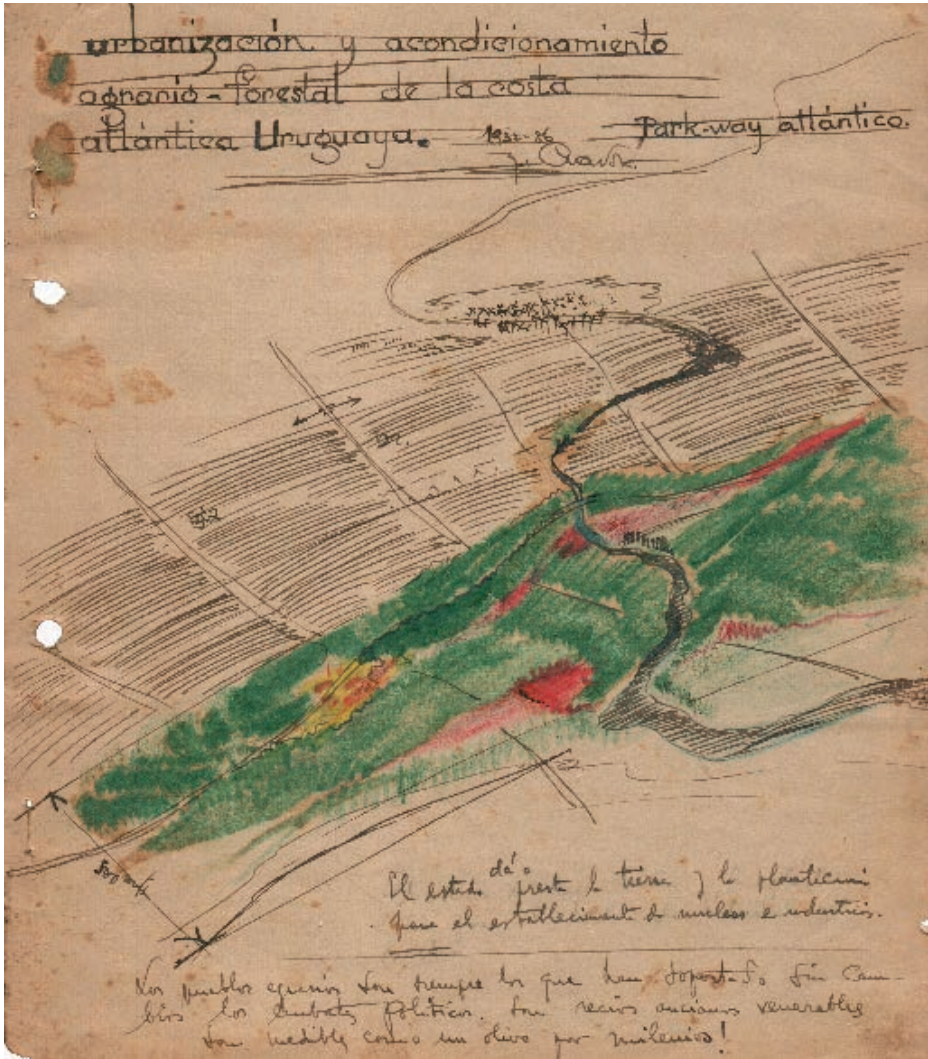 urbanización y acondicionamiento
agrario-forestal de la costa
atlántica Uruguaya.
Park-way atlántico.
El estado dá o presta la tierra y la
para el establecimiento de nucleos e industrias.
Los pueblos agrarios son siempre los que han soportado sin Cam-
bios los Embates Políticos. Son recios ancianos venerables
son medible como un olivo por milenios!